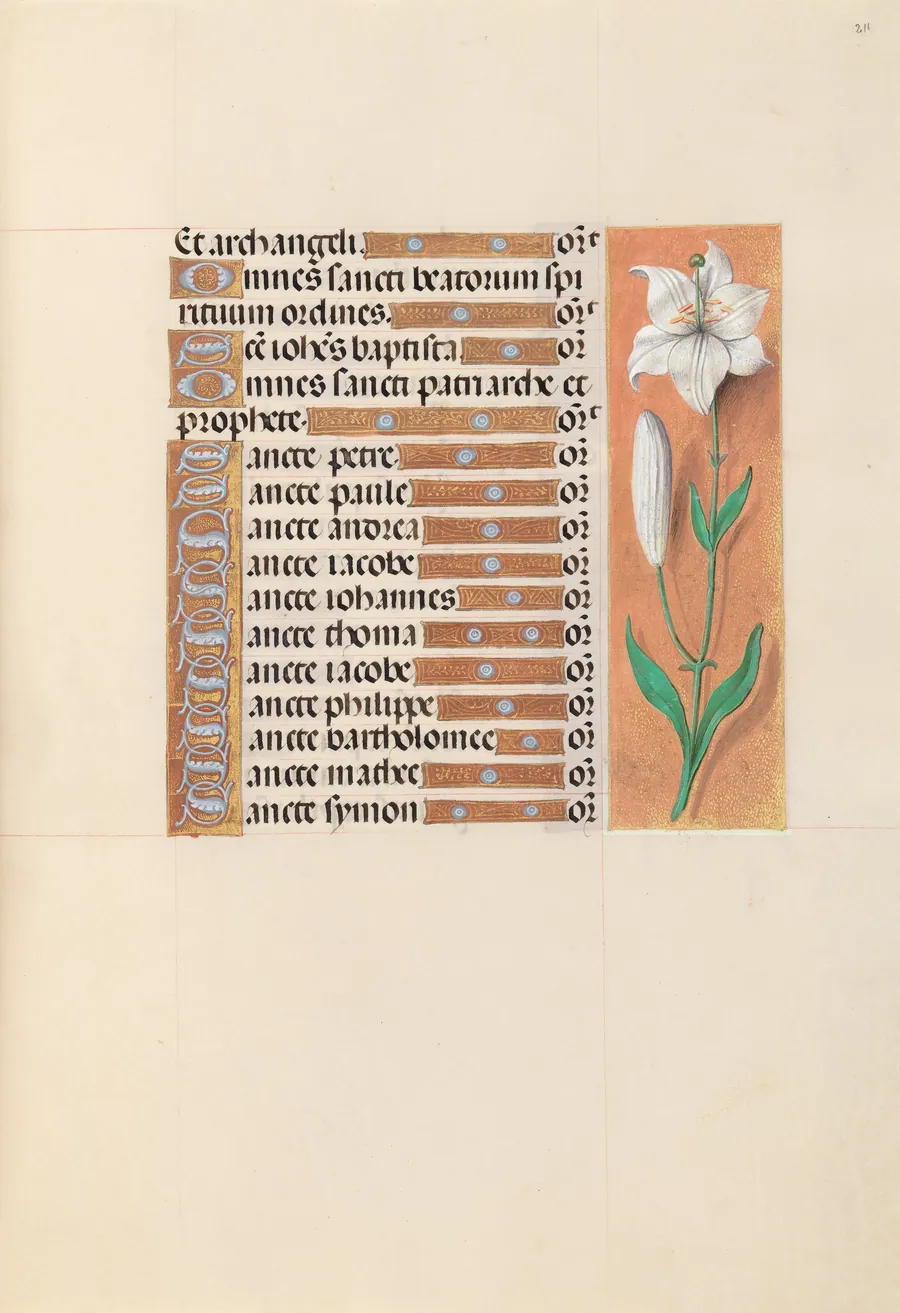 211
Et archangeli. or̄t
Omnes sancti beatorum spi
rituum ordines. or̄t
Scē ioh̄es baptista. or̄
Omnes sancti patriarche et
prophete. or̄t
Sancte petre. or̄
Sancte paule or̄
Sancte andrea or̄
Sancte iacobe or̄
Sancte iohannes or̄
Sancte thoma or̄
Sancte iacobe or̄
Sancte philippe or̄
Sancte bartholomee or̄
Sancte mathee or̄
Sancte symon or̄